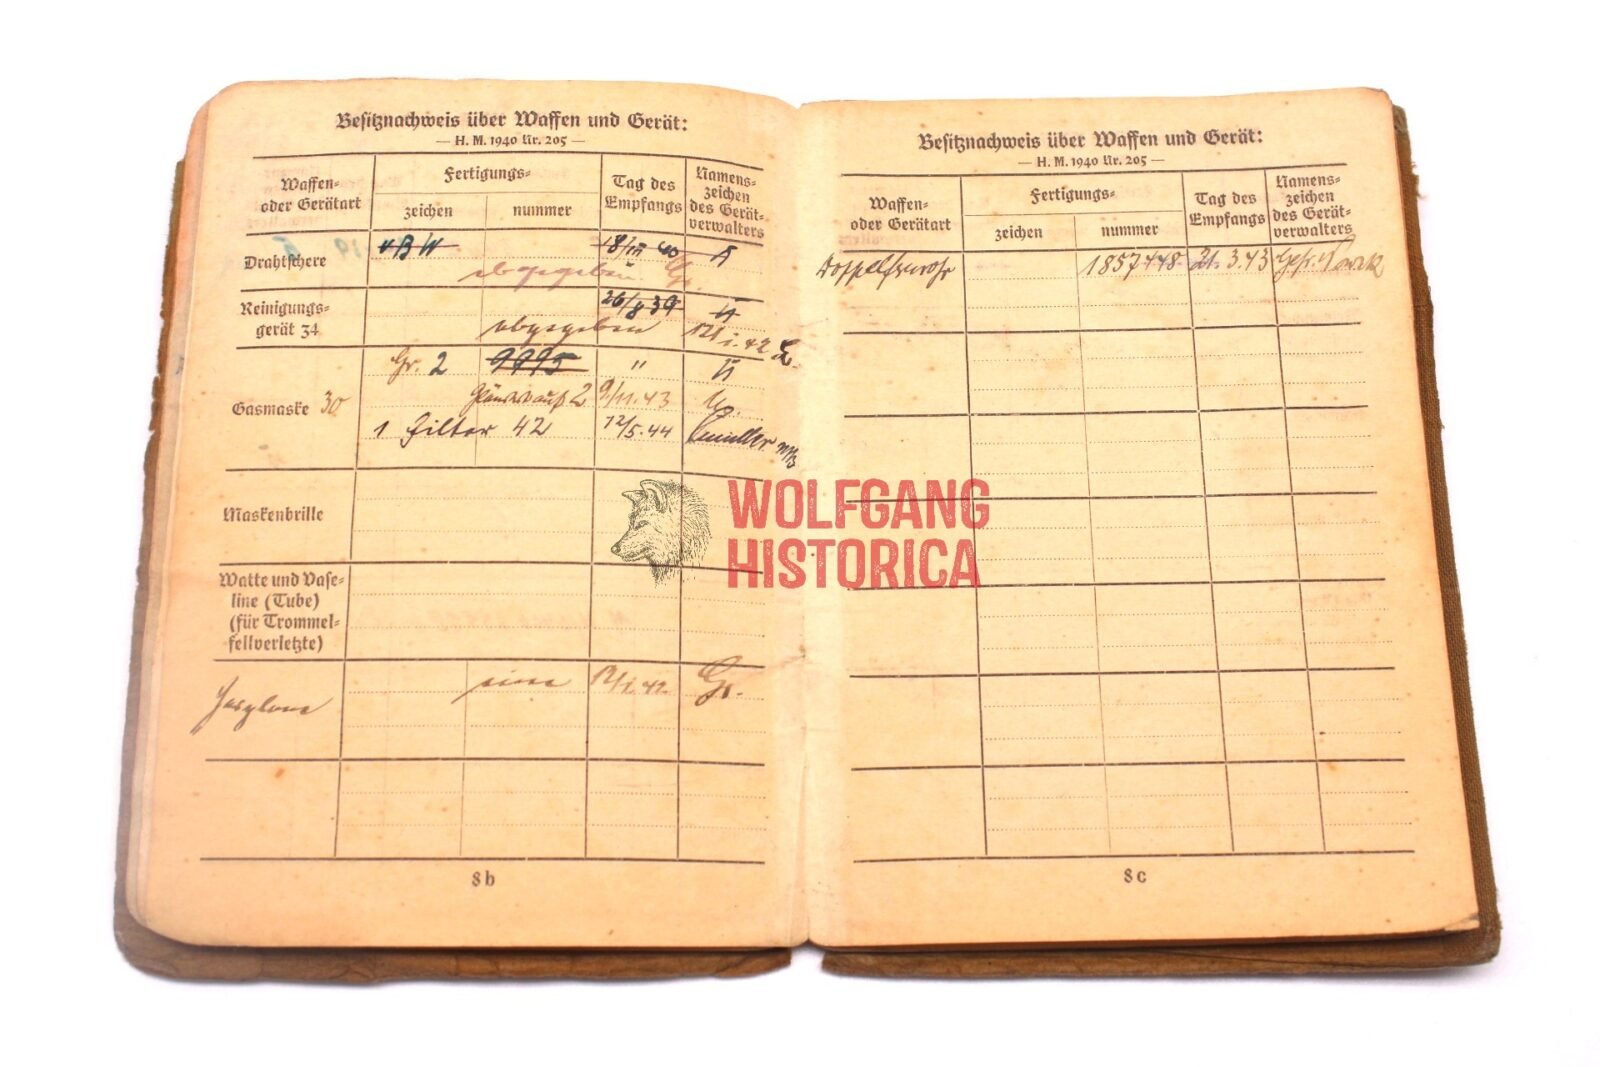 Besitznachweis über Waffen und Gerät:
— H. M. 1940 Nr. 205 —
Waffen-
oder Gerätart
Fertigungs-
zeichen
nummer
Tag des
Empfangs
Namens-
zeichen
des Gerät-
verwalters
Drahtschere
18/III 40
abgegeben
Gr.
Reinigungs-
gerät 34
26/8 39
abgegeben
Gasmaske 30
Gr. 2
9995
"
9/11.43
1 Filter 42
12/5.44
Maskenbrille
Watte und Vase-
line (Tube)
(für Trommel-
fellverletzte)
eine
Gr.
8b
Besitznachweis über Waffen und Gerät:
— H. M. 1940 Nr. 205 —
Waffen-
oder Gerätart
Fertigungs-
zeichen
nummer
Tag des
Empfangs
Namens-
zeichen
des Gerät-
verwalters
Doppelfernrohr
1857448
3.43
Gefr.
8c
WOLFGANG
HISTORICA